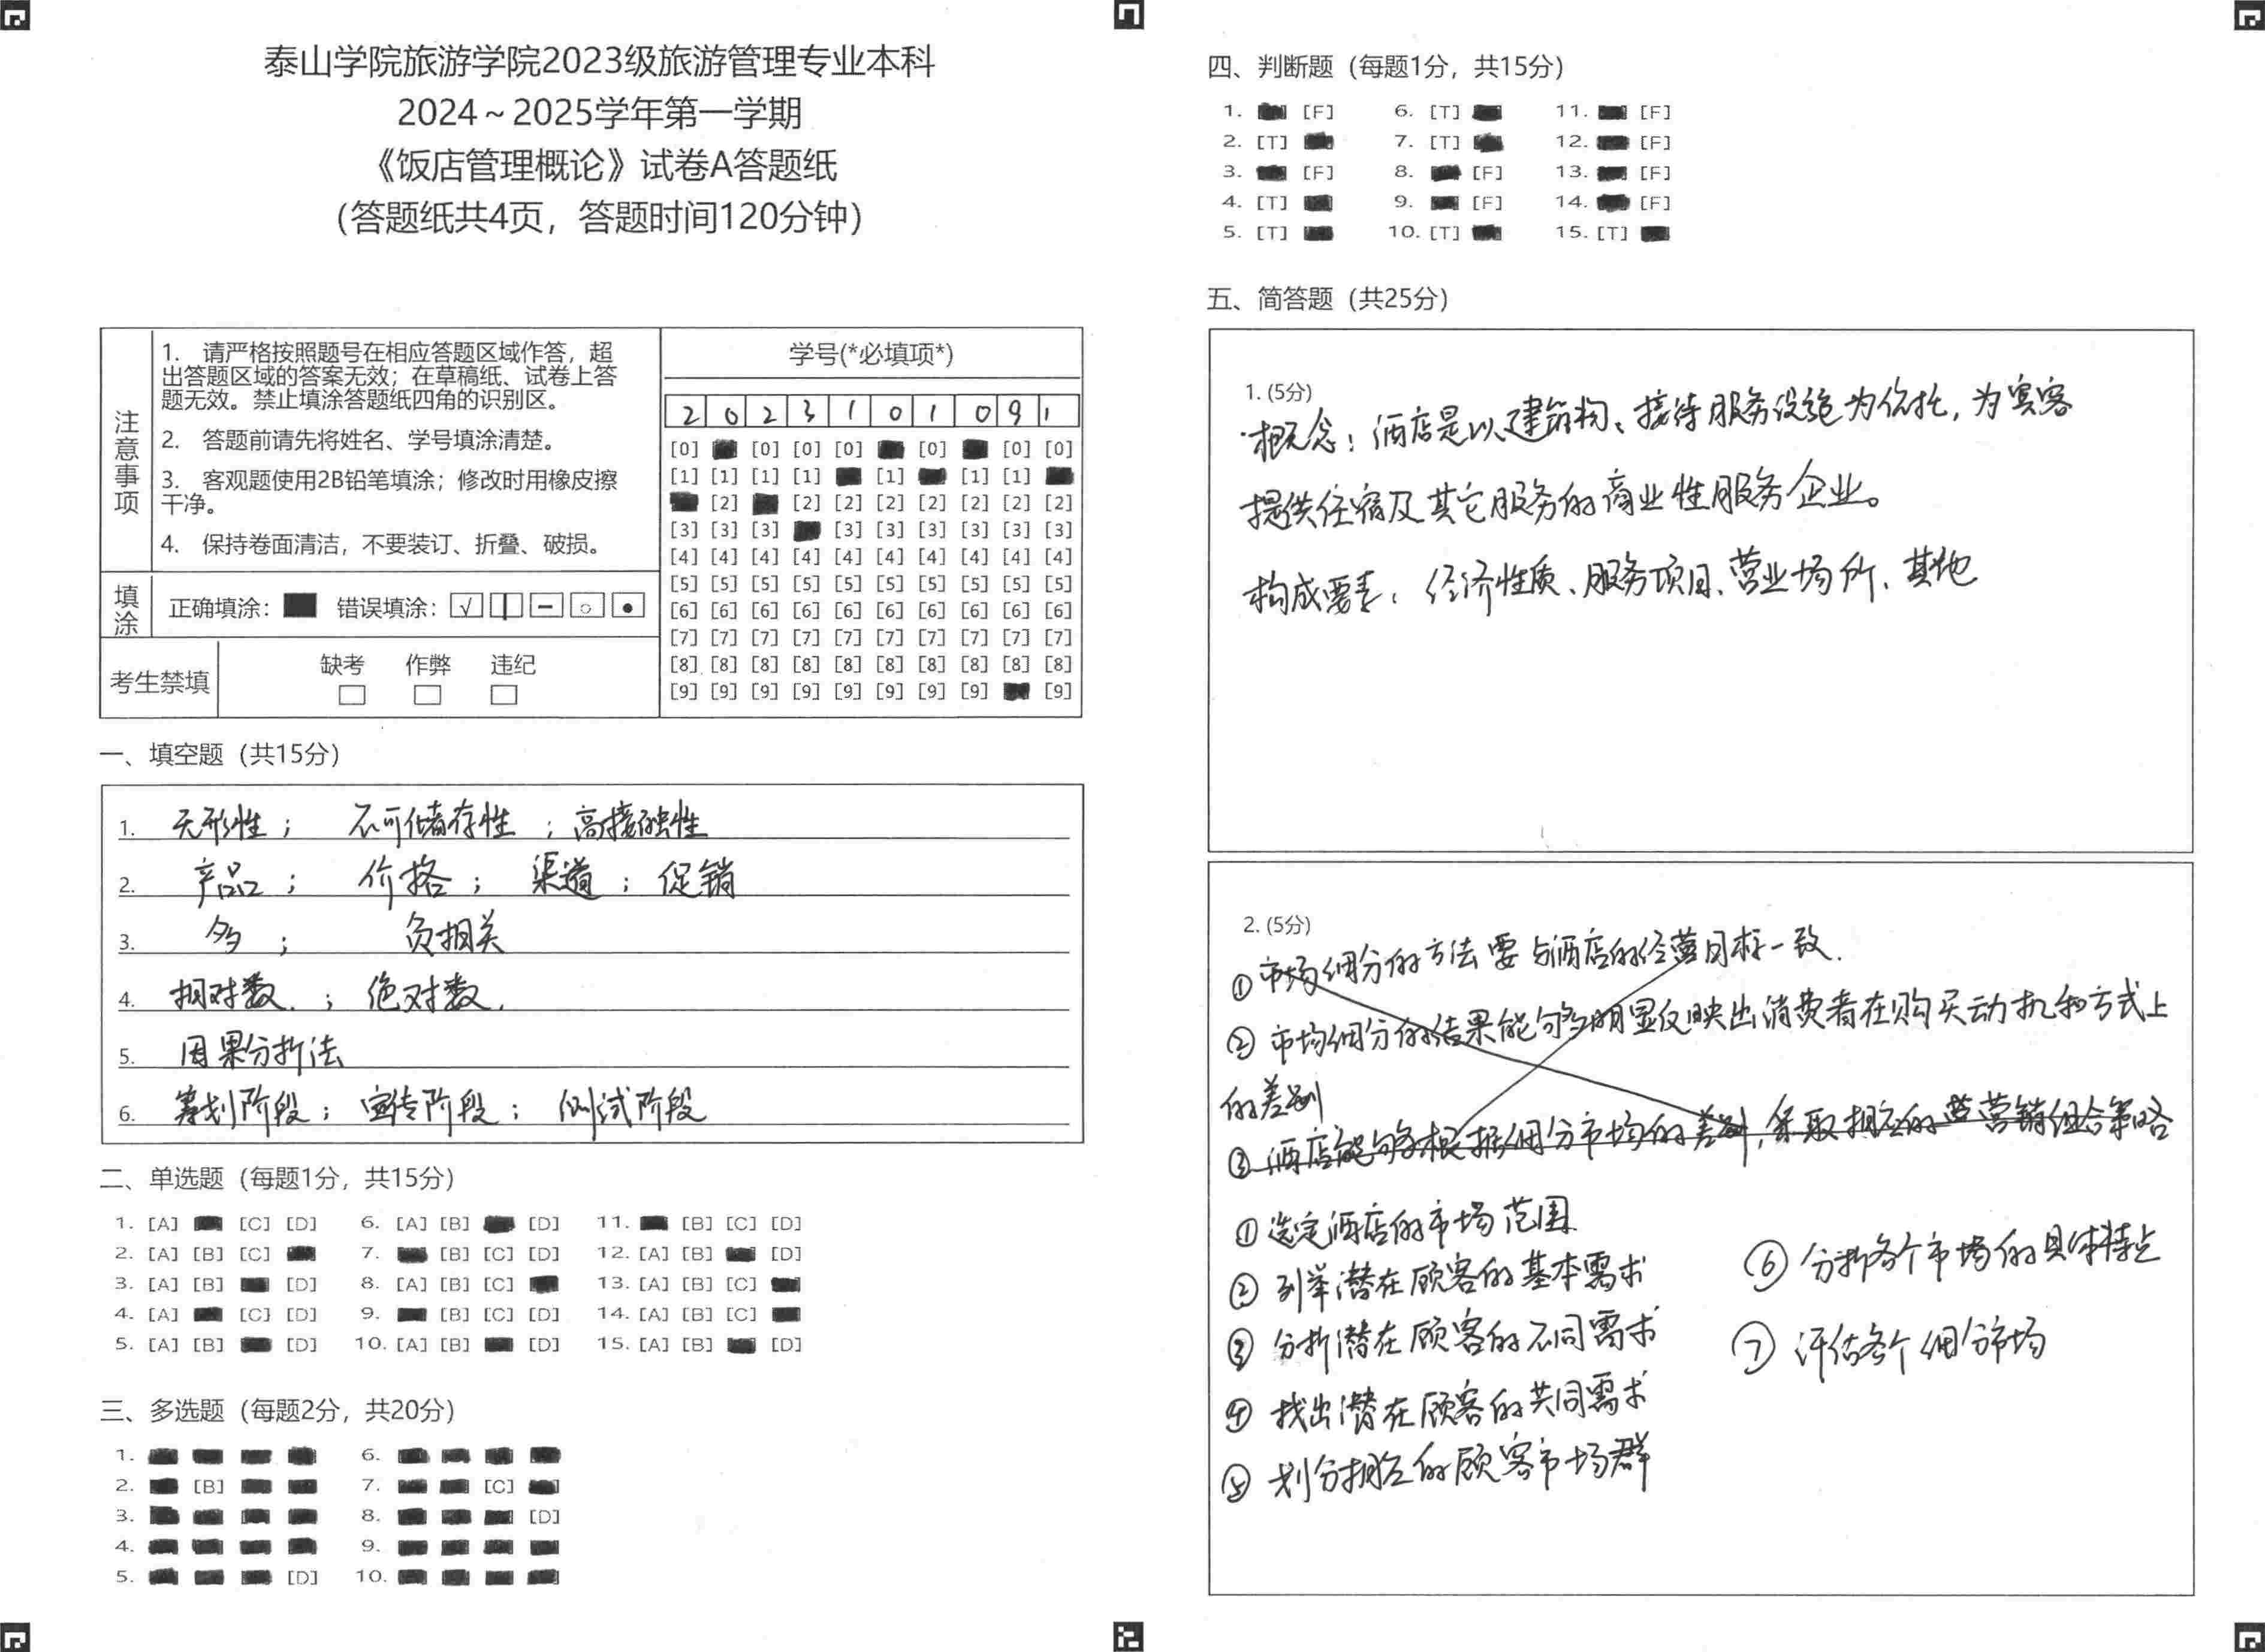 泰山学院旅游学院2023级旅游管理专业本科
2024～2025学年第一学期
《饭店管理概论》试卷A答题纸
（答题纸共4页，答题时间120分钟）
注意事项
1. 请严格按照题号在相应答题区域作答，超
出答题区域的答案无效；在草稿纸、试卷上答
题无效。禁止填涂答题纸四角的识别区。
2. 答题前请先将姓名、学号填涂清楚。
3. 客观题使用2B铅笔填涂；修改时用橡皮擦
干净。
4. 保持卷面清洁，不要装订、折叠、破损。
填涂
正确填涂： 错误填涂：
考生禁填
缺考 作弊 违纪
学号(*必填项*)
2 0 2 3 1 0 1 0 9 1
[0] [0] [0] [0] [0] [0] [0]
[1] [1] [1] [1] [1] [1] [1]
[2] [2] [2] [2] [2] [2] [2] [2]
[3] [3] [3] [3] [3] [3] [3] [3] [3]
[4] [4] [4] [4] [4] [4] [4] [4] [4] [4]
[5] [5] [5] [5] [5] [5] [5] [5] [5] [5]
[6] [6] [6] [6] [6] [6] [6] [6] [6] [6]
[7] [7] [7] [7] [7] [7] [7] [7] [7] [7]
[8] [8] [8] [8] [8] [8] [8] [8] [8] [8]
[9] [9] [9] [9] [9] [9] [9] [9] [9]
一、填空题（共15分）
1. 无形性； 不可储存性；高接触性
2. 产品； 价格； 渠道； 促销
3. 多； 负相关
4. 相对数.； 绝对数.
5. 因果分析法
6. 筹划阶段；宣传阶段；测试阶段
二、单选题（每题1分，共15分）
1. [A] [C] [D] 6. [A] [B] [D] 11. [B] [C] [D]
2. [A] [B] [C] 7. [B] [C] [D] 12. [A] [B] [D]
3. [A] [B] [D] 8. [A] [B] [C] 13. [A] [B] [C]
4. [A] [C] [D] 9. [B] [C] [D] 14. [A] [B] [C]
5. [A] [B] [D] 10. [A] [B] [D] 15. [A] [B] [D]
三、多选题（每题2分，共20分）
1. 6.
2. [B] 7. [C]
3. 8. [D]
4. 9.
5. [D] 10.
四、判断题（每题1分，共15分）
1. [F] 6. [T] 11. [F]
2. [T] 7. [T] 12. [F]
3. [F] 8. [F] 13. [F]
4. [T] 9. [F] 14. [F]
5. [T] 10. [T] 15. [T]
五、简答题（共25分）
1. (5分)
概念：酒店是以建筑物、接待服务设施为依托，为宾客
提供住宿及其它服务的商业性服务企业。
构成要素：经济性质、服务项目、营业场所、其他
2. (5分)
①市场细分的方法要与酒店的经营目标一致.
②市场细分的结果能够明显反映出消费者在购买动机和方式上
的差别
③酒店能够根据细分市场的差别，采取相应的营销组合策略
①选定酒店的市场范围
②列举潜在顾客的基本需求
③分析潜在顾客的不同需求
④找出潜在顾客的共同需求
⑤划分相应的顾客市场群
⑥分析各个市场的具体特点
⑦评估各个细分市场